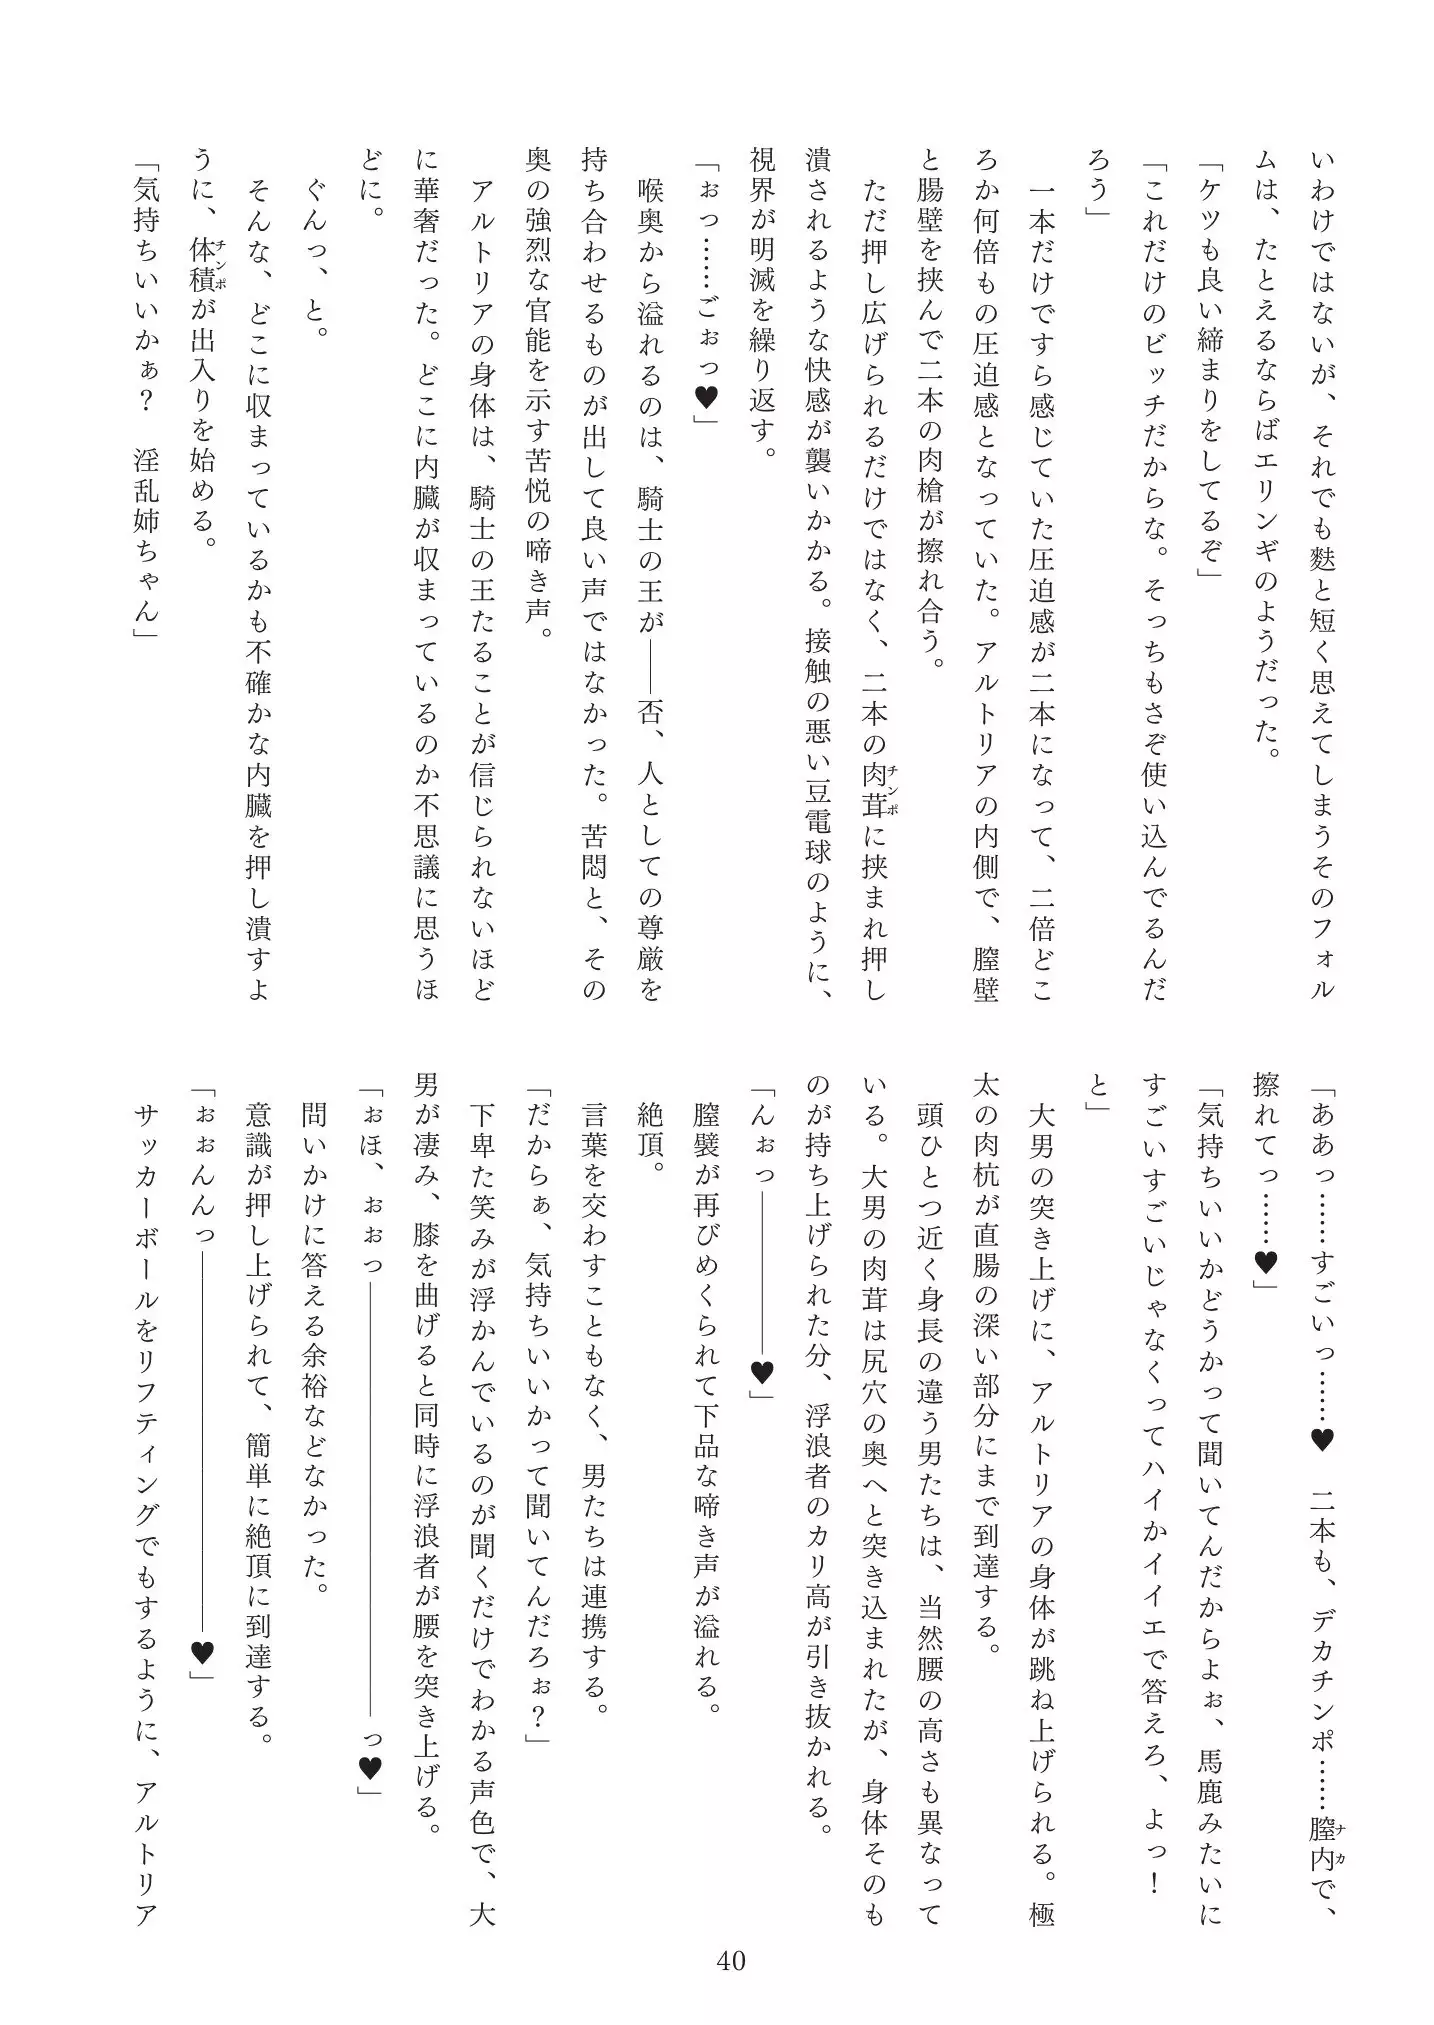 いわけではないが、それでも麩と短く思えてしまうそのフォル
ムは、たとえるならばエリンギのようだった。
「ケツも良い締まりをしてるぞ」
「これだけのビッチだからな。そっちもさぞ使い込んでるんだ
ろう」
　一本だけですら感じていた圧迫感が二本になって、二倍どこ
ろか何倍もの圧迫感となっていた。アルトリアの内側で、膣壁
と腸壁を挟んで二本の肉槍が擦れ合う。
　ただ押し広げられるだけではなく、二本の肉茸チンポに挟まれ押し
潰されるような快感が襲いかかる。接触の悪い豆電球のように、
視界が明滅を繰り返す。
「ぉっ……ごぉっ♥」
　喉奥から溢れるのは、騎士の王が――否、人としての尊厳を
持ち合わせるものが出して良い声ではなかった。苦悶と、その
奥の強烈な官能を示す苦悦の啼き声。
　アルトリアの身体は、騎士の王たることが信じられないほど
に華奢だった。どこに内臓が収まっているのか不思議に思うほ
どに。
　ぐんっ、と。
　そんな、どこに収まっているかも不確かな内臓を押し潰すよ
うに、体積チンポが出入りを始める。
「気持ちいいかぁ？　淫乱姉ちゃん」
「ああっ……すごいっ……♥　二本も、デカチンポ……膣内ナカで、
擦れてっ……♥」
「気持ちいいかどうかって聞いてんだからよぉ、馬鹿みたいに
すごいすごいじゃなくってハイかイイエで答えろ、よっ！
と」
　大男の突き上げに、アルトリアの身体が跳ね上げられる。極
太の肉杭が直腸の深い部分にまで到達する。
　頭ひとつ近く身長の違う男たちは、当然腰の高さも異なって
いる。大男の肉茸は尻穴の奥へと突き込まれたが、身体そのも
のが持ち上げられた分、浮浪者のカリ高が引き抜かれる。
「んぉっ―――――♥」
　膣襞が再びめくられて下品な啼き声が溢れる。
　絶頂。
　言葉を交わすこともなく、男たちは連携する。
「だからぁ、気持ちいいかって聞いてんだろぉ？」
　下卑た笑みが浮かんでいるのが聞くだけでわかる声色で、大
男が凄み、膝を曲げると同時に浮浪者が腰を突き上げる。
「ぉほ、ぉぉっ――――――――――――――っ♥」
　問いかけに答える余裕などなかった。
　意識が押し上げられて、簡単に絶頂に到達する。
「ぉぉんんっ――――――――――――♥」
　サッカーボールをリフティングでもするように、アルトリア
40